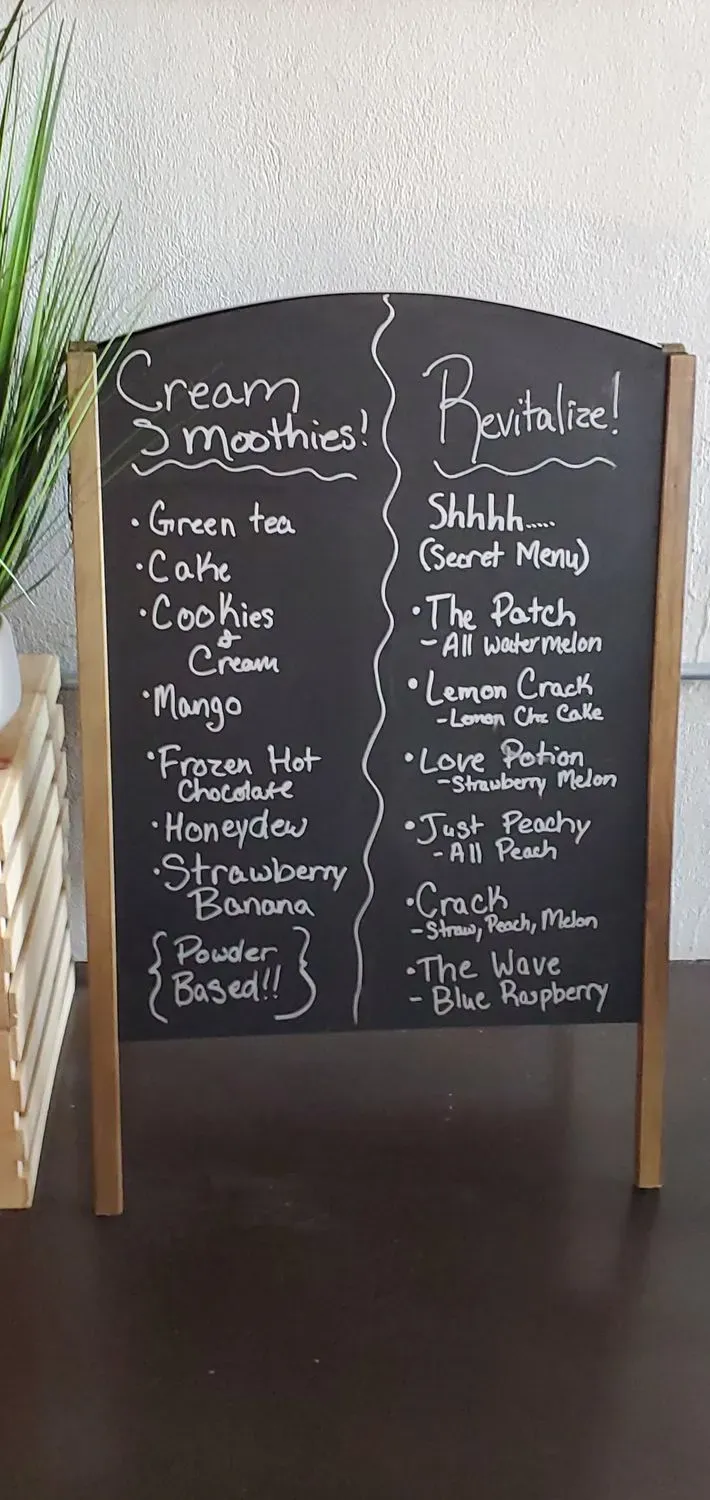 Cream
Smoothies!
• Green tea
• Cake
• Cookies
&
Cream
• Mango
• Frozen Hot
Chocolate
• Honeydew
• Strawberry
Banana
{Powder
Based!!}
Revitalize!
Shhhh.....
(Secret Menu)
• The Patch
- All watermelon
• Lemon Crack
- Lemon Chz Cake
• Love Potion
- Strawberry Melon
• Just Peachy
- All Peach
• Crack
- Straw, Peach, Melon
• The Wave
- Blue Raspberry